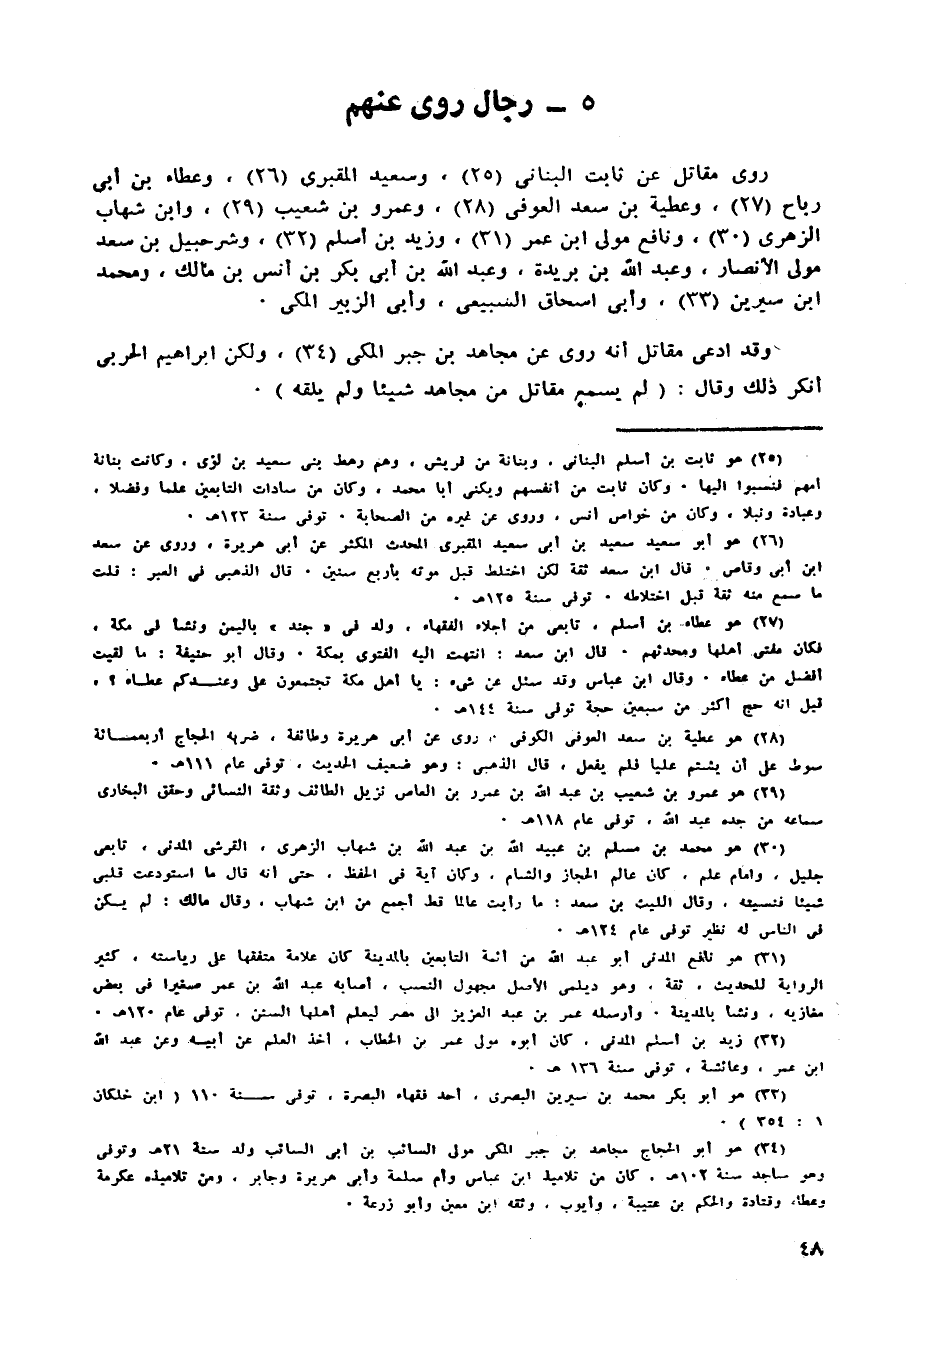 ٥ ــ رجال روى عنهم
روى مقاتل عن ثابت البنانى (٢٥) ، وسعيد المقبرى (٢٦) ، وعطاء بن أبى
رباح (٢٧) ، وعطية بن سعد العوفى (٢٨) ، وعمرو بن شعيب (٢٩) ، وابن شهاب
الزهرى (٣٠) ، ونافع مولى ابن عمر (٣١) ، وزيد بن أسلم (٣٢) ، وشرحبيل بن سعد
مولى الأنصار ، وعبد الله بن بريدة ، وعبد الله بن أبى بكر بن أنس بن مالك ، ومحمد
ابن سيرين (٣٣) ، وأبى اسحاق السبيعى ، وأبى الزبير المكى ٠
وقد ادعى مقاتل أنه روى عن مجاهد بن جبر المكى (٣٤) ، ولكن ابراهيم الحربى
أنكر ذلك وقال : ( لم يسمع مقاتل من مجاهد شيئا ولم يلقه ) ٠
(٢٥) هو ثابت بن أسلم البنانى ، وبنانة من قريش ، وهم رهط بنى سعيد بن لؤى ، وكانت بنانة
أمهم فنسبوا اليها ٠ وكان ثابت من أنفسهم ويكنى أبا محمد ، وكان من سادات التابعين علما وفضلا ،
وعبادة ونبلا ، وكان من خواص أنس ، وروى عن غيره من الصحابة ٠ توفى سنة ١٢٣هـ ٠
(٢٦) هو أبو سعيد سعيد بن أبى سعيد المقبرى المحدث المكثر عن أبى هريرة ، وروى عن سعد
ابن أبى وقاص ٠ قال ابن سعد ثقة لكن اختلط قبل موته بأربع سنين ٠ قال الذهبى فى العبر : قلت
ما سمع منه ثقة قبل اختلاطه ٠ توفى سنة ١٢٥هـ ٠
(٢٧) هو عطاء بن أسلم ، تابعى من أجلاء الفقهاء ، ولد فى « جند » باليمن ونشأ فى مكة ،
فكان مفتى أهلها ومحدثهم ٠ قال ابن سعد : انتهت اليه الفتوى بمكة ٠ وقال أبو حنيفة : ما لقيت
أفضل من عطاء ٠ وقال ابن عباس وقد سئل عن شىء : يا أهل مكة تجتمعون على وعنــدكم عطــاء ؟ ،
قيل انه حج أكثر من سبعين حجة توفى سنة ١٤٤هـ ٠
(٢٨) هو عطية بن سعد العوفى الكوفى ، روى عن أبى هريرة وطائفة ، ضربه الحجاج أربعمــائة
سوط على أن يشتم عليا فلم يفعل ، قال الذهبى : وهو ضعيف الحديث ، توفى عام ١١١هـ ٠
(٢٩) هو عمرو بن شعيب بن عبد الله بن عمرو بن العاص نزيل الطائف وثقة النسائى وحقق البخارى
سماعه من جده عبد الله ، توفى عام ١١٨هـ ٠
(٣٠) هو محمد بن مسلم بن عبيد الله بن عبد الله بن شهاب الزهرى ، القرشى المدنى ، تابعى
جليل ، وامام علم ، كان عالم الحجاز والشام ، وكان آية فى الحفظ ، حتى أنه قال ما استودعت قلبى
شيئا فنسيته ، وقال الليث بن سعد : ما رأيت عالما قط أجمع من ابن شهاب ، وقال مالك : لم يــكن
فى الناس له نظير توفى عام ١٢٤هـ ٠
(٣١) هو نافع المدنى أبو عبد الله من أئمة التابعين بالمدينة كان علامة متفقها على رياسته ، كثير
الرواية للحديث ، ثقة ، وهو ديلمى الأصل مجهول النسب ، أصابه عبد الله بن عمر صغيرا فى بعض
مغازيه ، ونشأ بالمدينة ٠ وأرسله عمر بن عبد العزيز الى مصر ليعلم أهلها السنن ، توفى عام ١٢٠هـ ٠
(٣٢) زيد بن أسلم المدنى ، كان أبوه مولى عمر بن الخطاب ، أخذ العلم عن أبيــه وعن عبد الله
ابن عمر ، وعائشة ، توفى سنة ١٣٦ هـ ٠
(٣٣) هو أبو بكر محمد بن سيرين البصرى ، أحد فقهاء البصرة ، توفى ســنة ١١٠ ( ابن خلكان
١ : ٣٥٤ ) ٠
(٣٤) هو أبو الحجاج مجاهد بن جبر المكى مولى السائب بن أبى السائب ولد سنة ٢١هـ وتوفى
وهو ساجد سنة ١٠٢هـ ٠ كان من تلاميذ ابن عباس وأم سلمة وأبى هريرة وجابر ، ومن تلاميذه عكرمة
وعطاء وقتادة والحكم بن عتيبة ، وأيوب ، وثقه ابن معين وأبو زرعة ٠
٤٨